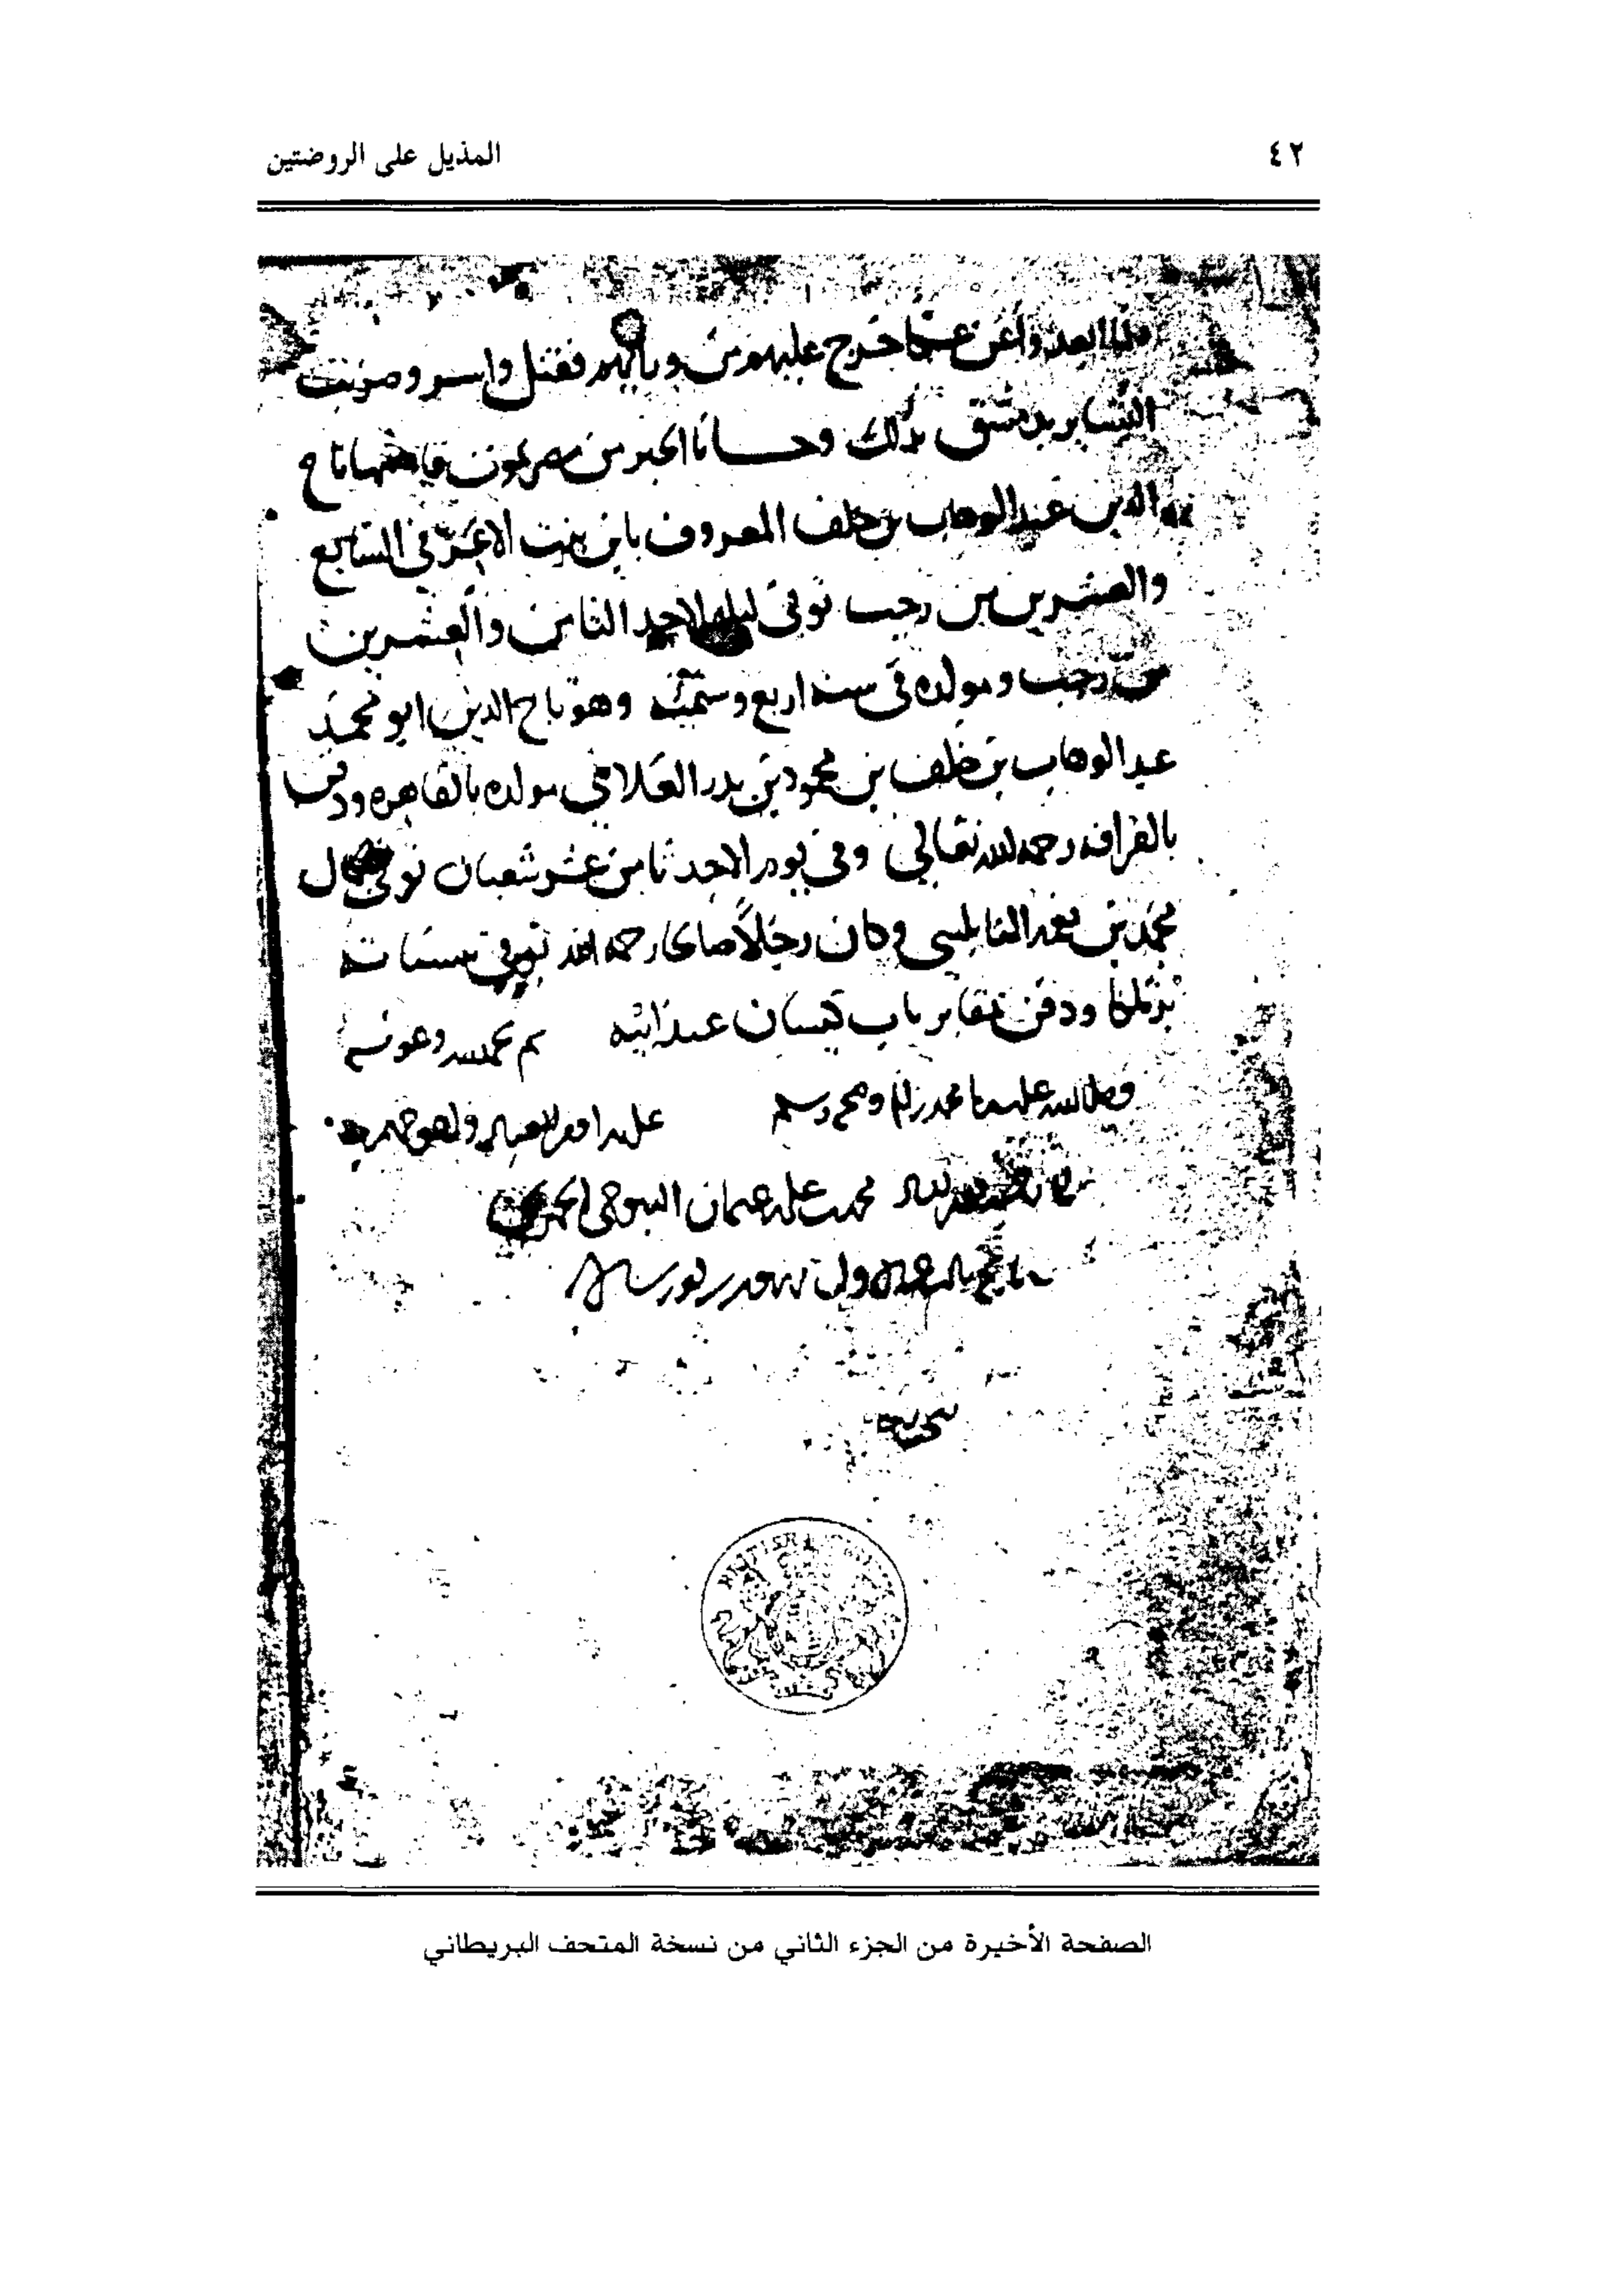 ٤٢
المذيل على الروضتين
فلما ابعدوا عن عكا خرج عليهم من وبالهم فقتل واسر وضربت
البشاير بدمشق بذلك وجانا الخبر من مصر بموت قاضيها تاج
الدين عبد الوهاب بن خلف المعروف بابن بنت الاعز في السابع
والعشرين من رجب توفي ليله الاحد الثامن والعشرين
من رجب ومولده في سنه اربع وستمئه وهو تاج الدين ابو محمد
عبد الوهاب بن خلف بن محمود بن بدر العلامي مولده بالقاهره ودفن
بالقرافه رحمه الله تعالى وفي يوم الاحد ثامن عشر شعبان توفي
محمد بن النابلسي وكان رجلاً صالحا رحمه الله توفي ببستانه
ودفن بمقابر باب كيسان عند ابيه تم بحمد الله وعونه
وصلى الله على سيدنا محمد واله وصحبه وسلم
على يد افقر العباد
محمد بن علي بن عثمان
BRITISH
الصفحة الأخيرة من الجزء الثاني من نسخة المتحف البريطاني